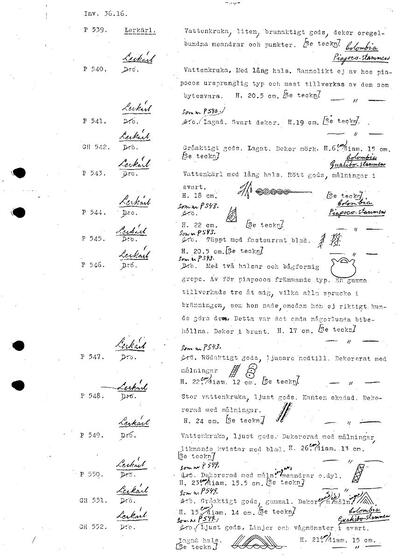 Inv. 36.16.
P 539. Lerkärl. Vattenkruka, liten, brunaktigt gods, dekor oregel-
bundna meandrar och punkter. [Se teckn] Colombia
Lerkärl Piapoco-stammen
P 540. Dro. Vattenkruka. Med lång hals. Sannolikt ej av hos pia-
pocos ursprunglig typ och mest tillverkas av dem som
bytesvara. H. 20.5 cm. [Se teckn] — " —
Lerkärl Som nr P 540.
P 541. Dro. Dro. Lagad. Svart dekor. H. 19 cm. [Se teckn] — " —
Lerkärl
GH 542. Dro. Gråaktigt gods. Lagat. Dekor mörk. H. 6. cm, diam. 15 cm.
[Se teckn] Colombia
Lerkärl Guahibo-stammen
P 543. Dro. Vattenkärl med lång hals. Rött gods, målningar i
svart.
H. 18 cm. [Se teckn] Colombia
Lerkärl Som nr P 543. Piapoco-stammen
P 544. Dro. Dro.
H. 22 cm. [Se teckn] — " —
Lerkärl Som nr P 543.
P 545. Dro. Dro. Täppt med fastsurrat blad.
H. 20.5 cm. [Se teckn] — " —
Lerkärl Som nr P 543.
P 546. Dro. Dro. Med två halsar och bågformig
grepe. Av för piapocos främmande typ. En gumma
tillverkade tre åt mig, vilka alla sprucko i
bränningen, som hon sade, emedan hon ej riktigt kun-
de göra dem. Detta var det enda någorlunda bibe-
hållna. Dekor i brunt. H. 17 cm. [Se teckn] — " —
Lerkärl Som nr P 543.
P 547. Dro. Dro. Rödaktigt gods, ljusare nedtill. Dekorerat med
målningar
H. 22. cm, diam. 12 cm. [Se teckn] — " —
Lerkärl
P 548. Dro. Stor vattenkruka, ljust gods. Kanten skadad. Deko-
rerad med målningar.
H. 24 cm. [Se teckn] — " —
Lerkärl
P 549. Dro. Vattenkruka, ljust gods. Dekorerad med målningar
liknande kvistar med blad. H. 26. cm, diam. 13 cm.
[Se teckn] — " —
Lerkärl Som nr P 549.
P 550. Dro. Dro. Dekorerad med målningar, meandrar o.dyl.
H. 23. cm, diam. 15.5 cm. [Se teckn] — " —
Lerkärl Som nr P 549.
GH 551. Dro. Dro. Gråaktigt gods, gammal. Dekor målning
H. 15. cm, diam. 14 cm. [Se teckn] Colombia
Lerkärl Som nr P 549. Guahibo-stammen
GH 552. Dro. Dro. Ljust gods. Linjer och vågmönster i svart.
Ingen hals. H. 21. cm, diam. 15 cm.
[Se teckn] — " —